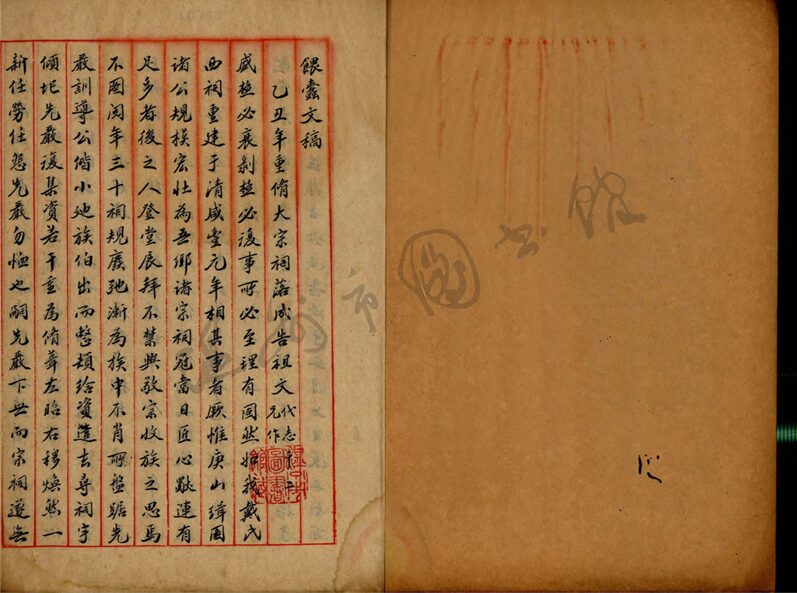 餵蠹文稿
乙丑年重脩大宗祠落成告祖文代志兄作
盛極必衰剝極必復事所必至理有固然我戴氏
西祠重建于清咸豐元年相其事者厥惟庚山緯國
諸公規模宏壯為吾鄉諸宗祠冠當日匠心運有
足多者後之人登堂展拜不禁興敬宗收族之思焉
不圖閱年三十祠規廢弛漸為族中不肖所盤踞先
嚴訓導公偕小族伯出而整頓給資遣去尋祠宇
傾圮先嚴復集資若干重為脩葺左昭右穆煥然一
新任勞任怨先嚴勿恤也嗣先嚴下世而宗祠遂無
温州市图书馆